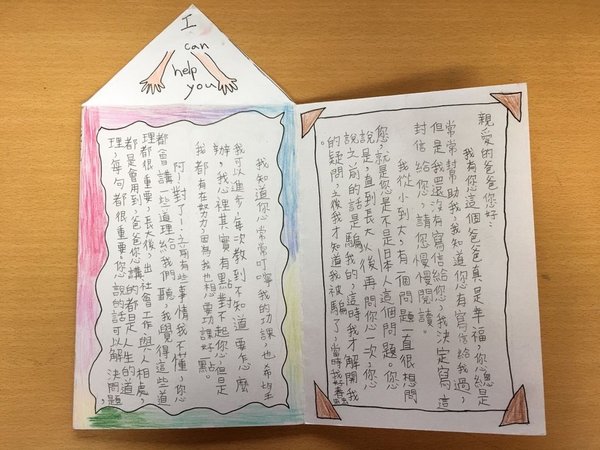 I
can
help
you
親愛的爸爸您好:
我有您這個爸爸真是幸福,您總是
常常封幫助我,我知道您有寫信給我過,
但是我還沒有寫信給您,我決定寫這
封信給您,請您慢慢閱讀。
我從小到大,有一個問題一直很想問
您,就是您是不是日本人這個問題。您
說是,直到長大以後再問您一次,您
說之前的話是騙我的,這時我才解開我
的疑問,之後我才知道我被騙了,當時我好蠢。
我知道您常常叮嚀我的功課,也希望
我可以進步,每次教到不知道要怎麼
辦,我心裡其實有點對不起您,但是
我都有在努力,因為我也想要功課好一點。
阿!對了!有些事情我不懂,您
都會講一些道理給我們聽,我覺得這些道
理都很重要,長大後,出社會工作與人相處,
都是會用到,爸爸您講的都是人生的道
理,每句都很重要。您說的話可以解決問題,